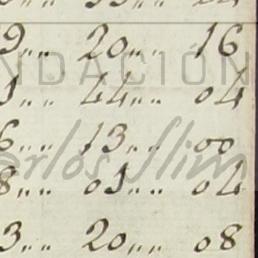 9,, 20,, 16
FUNDACIÓN
1,, 44,, 04
6,, 13,, 00
Carlos Slim
8,, 01,, 04
3,, 20,, 08